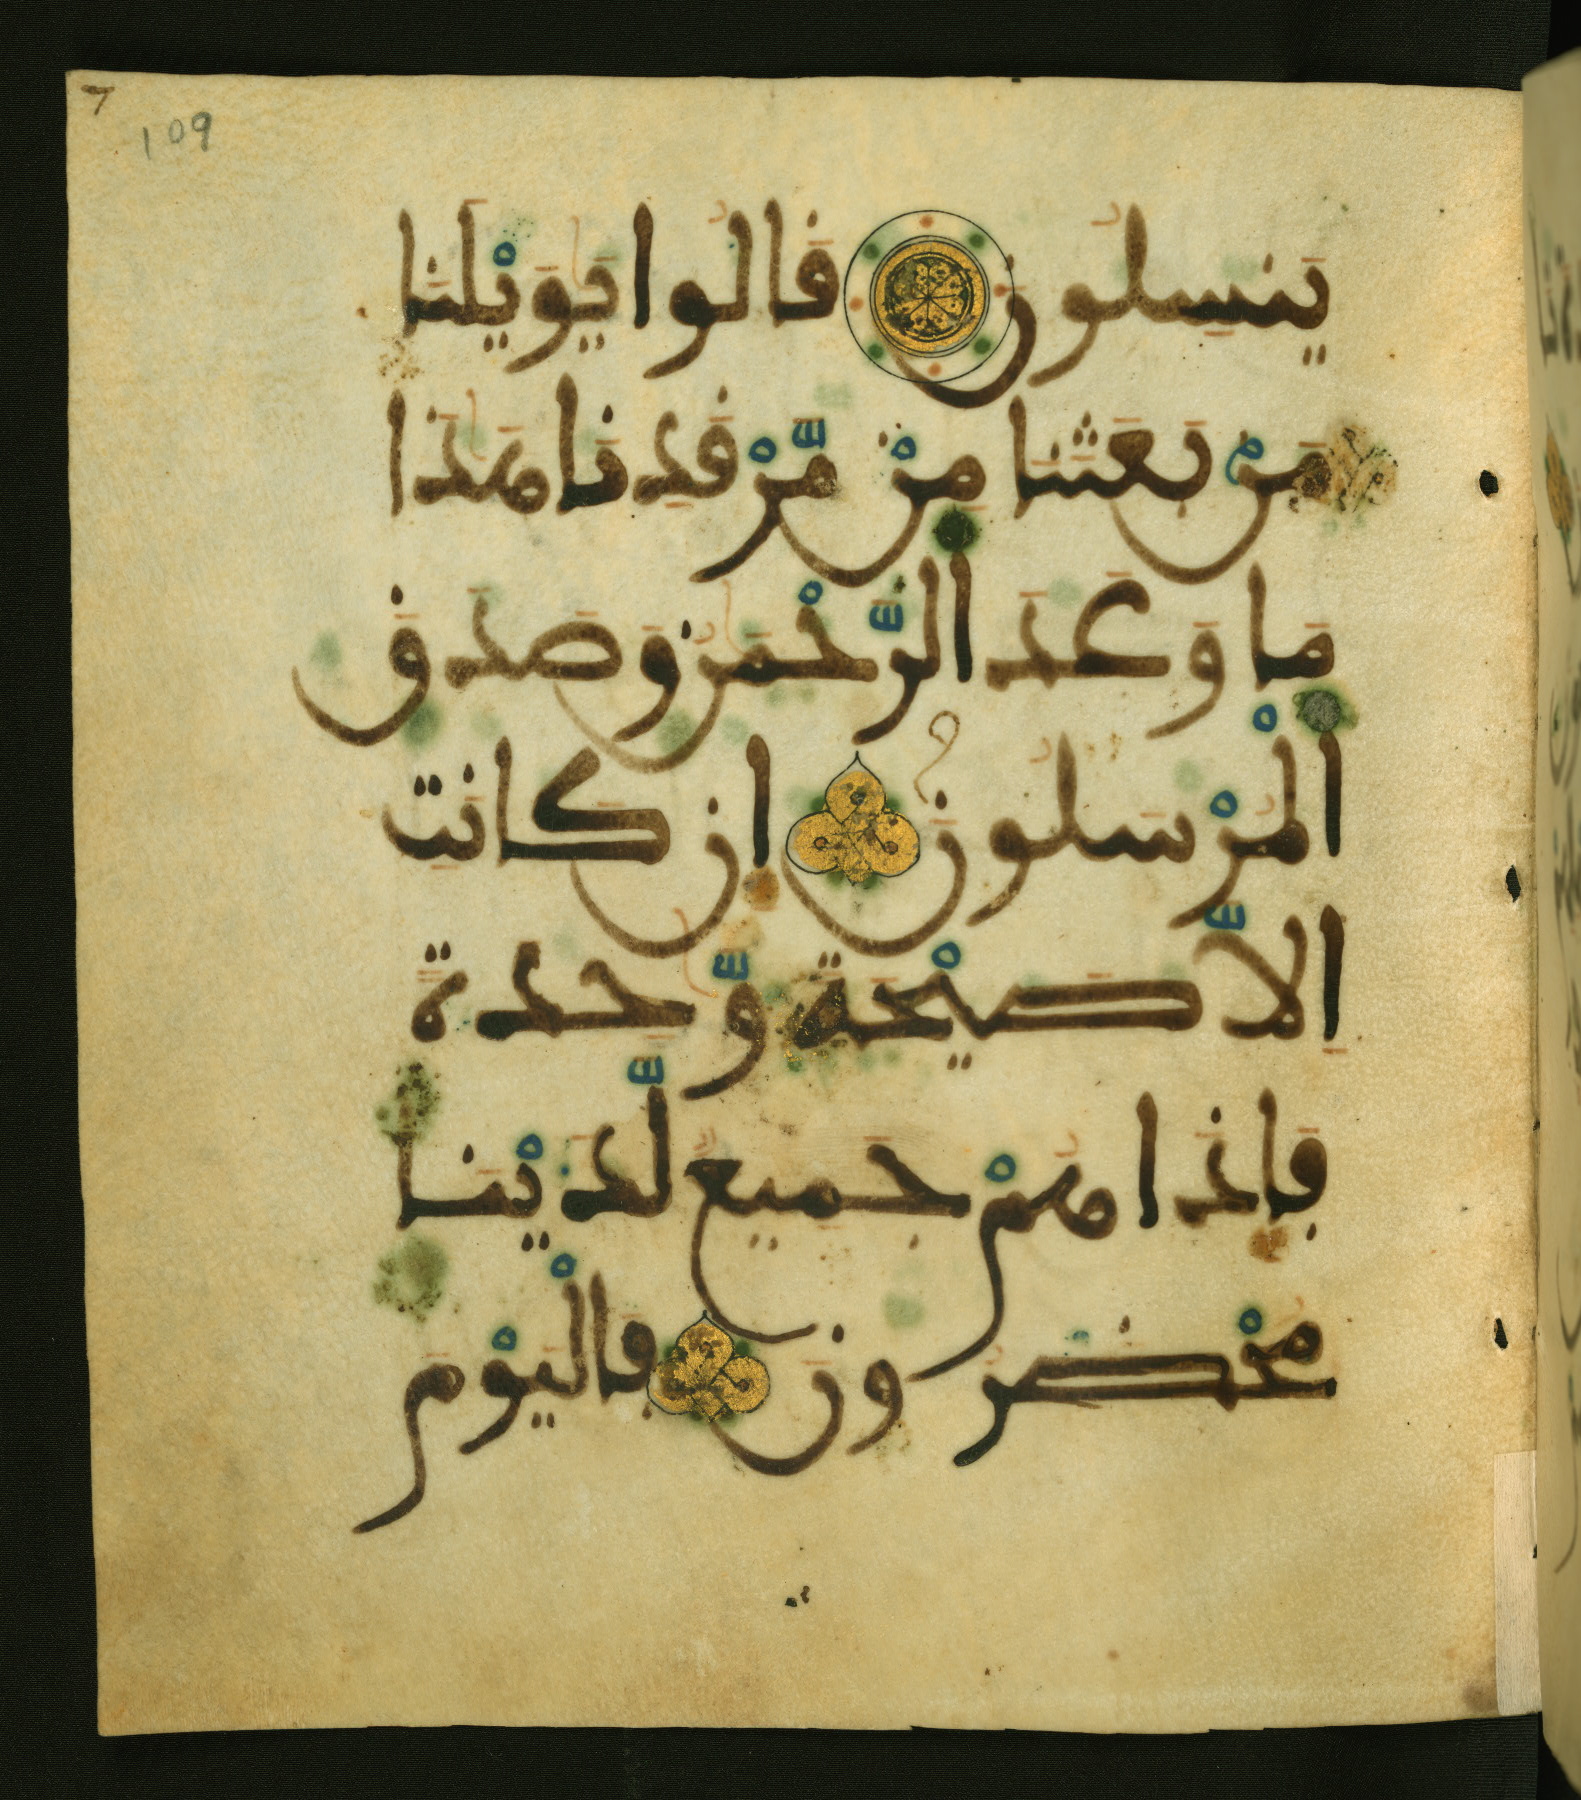 7
109
يَنسِلُونَ قَالُوا يَٰوَيْلَنَا
مَنۢ بَعَثَنَا مِن مَّرْقَدِنَا هَٰذَا
مَا وَعَدَ الرَّحْمَٰنُ وَصَدَقَ
الْمُرْسَلُونَ إِن كَانَتِ
الَّا صَيْحَةً وَّٰحِدَةً
فَإِذَا هُمْ جَمِيعٌ لَّدَيْنَا
مُحْضَرُونَ فَالْيَوْمَ